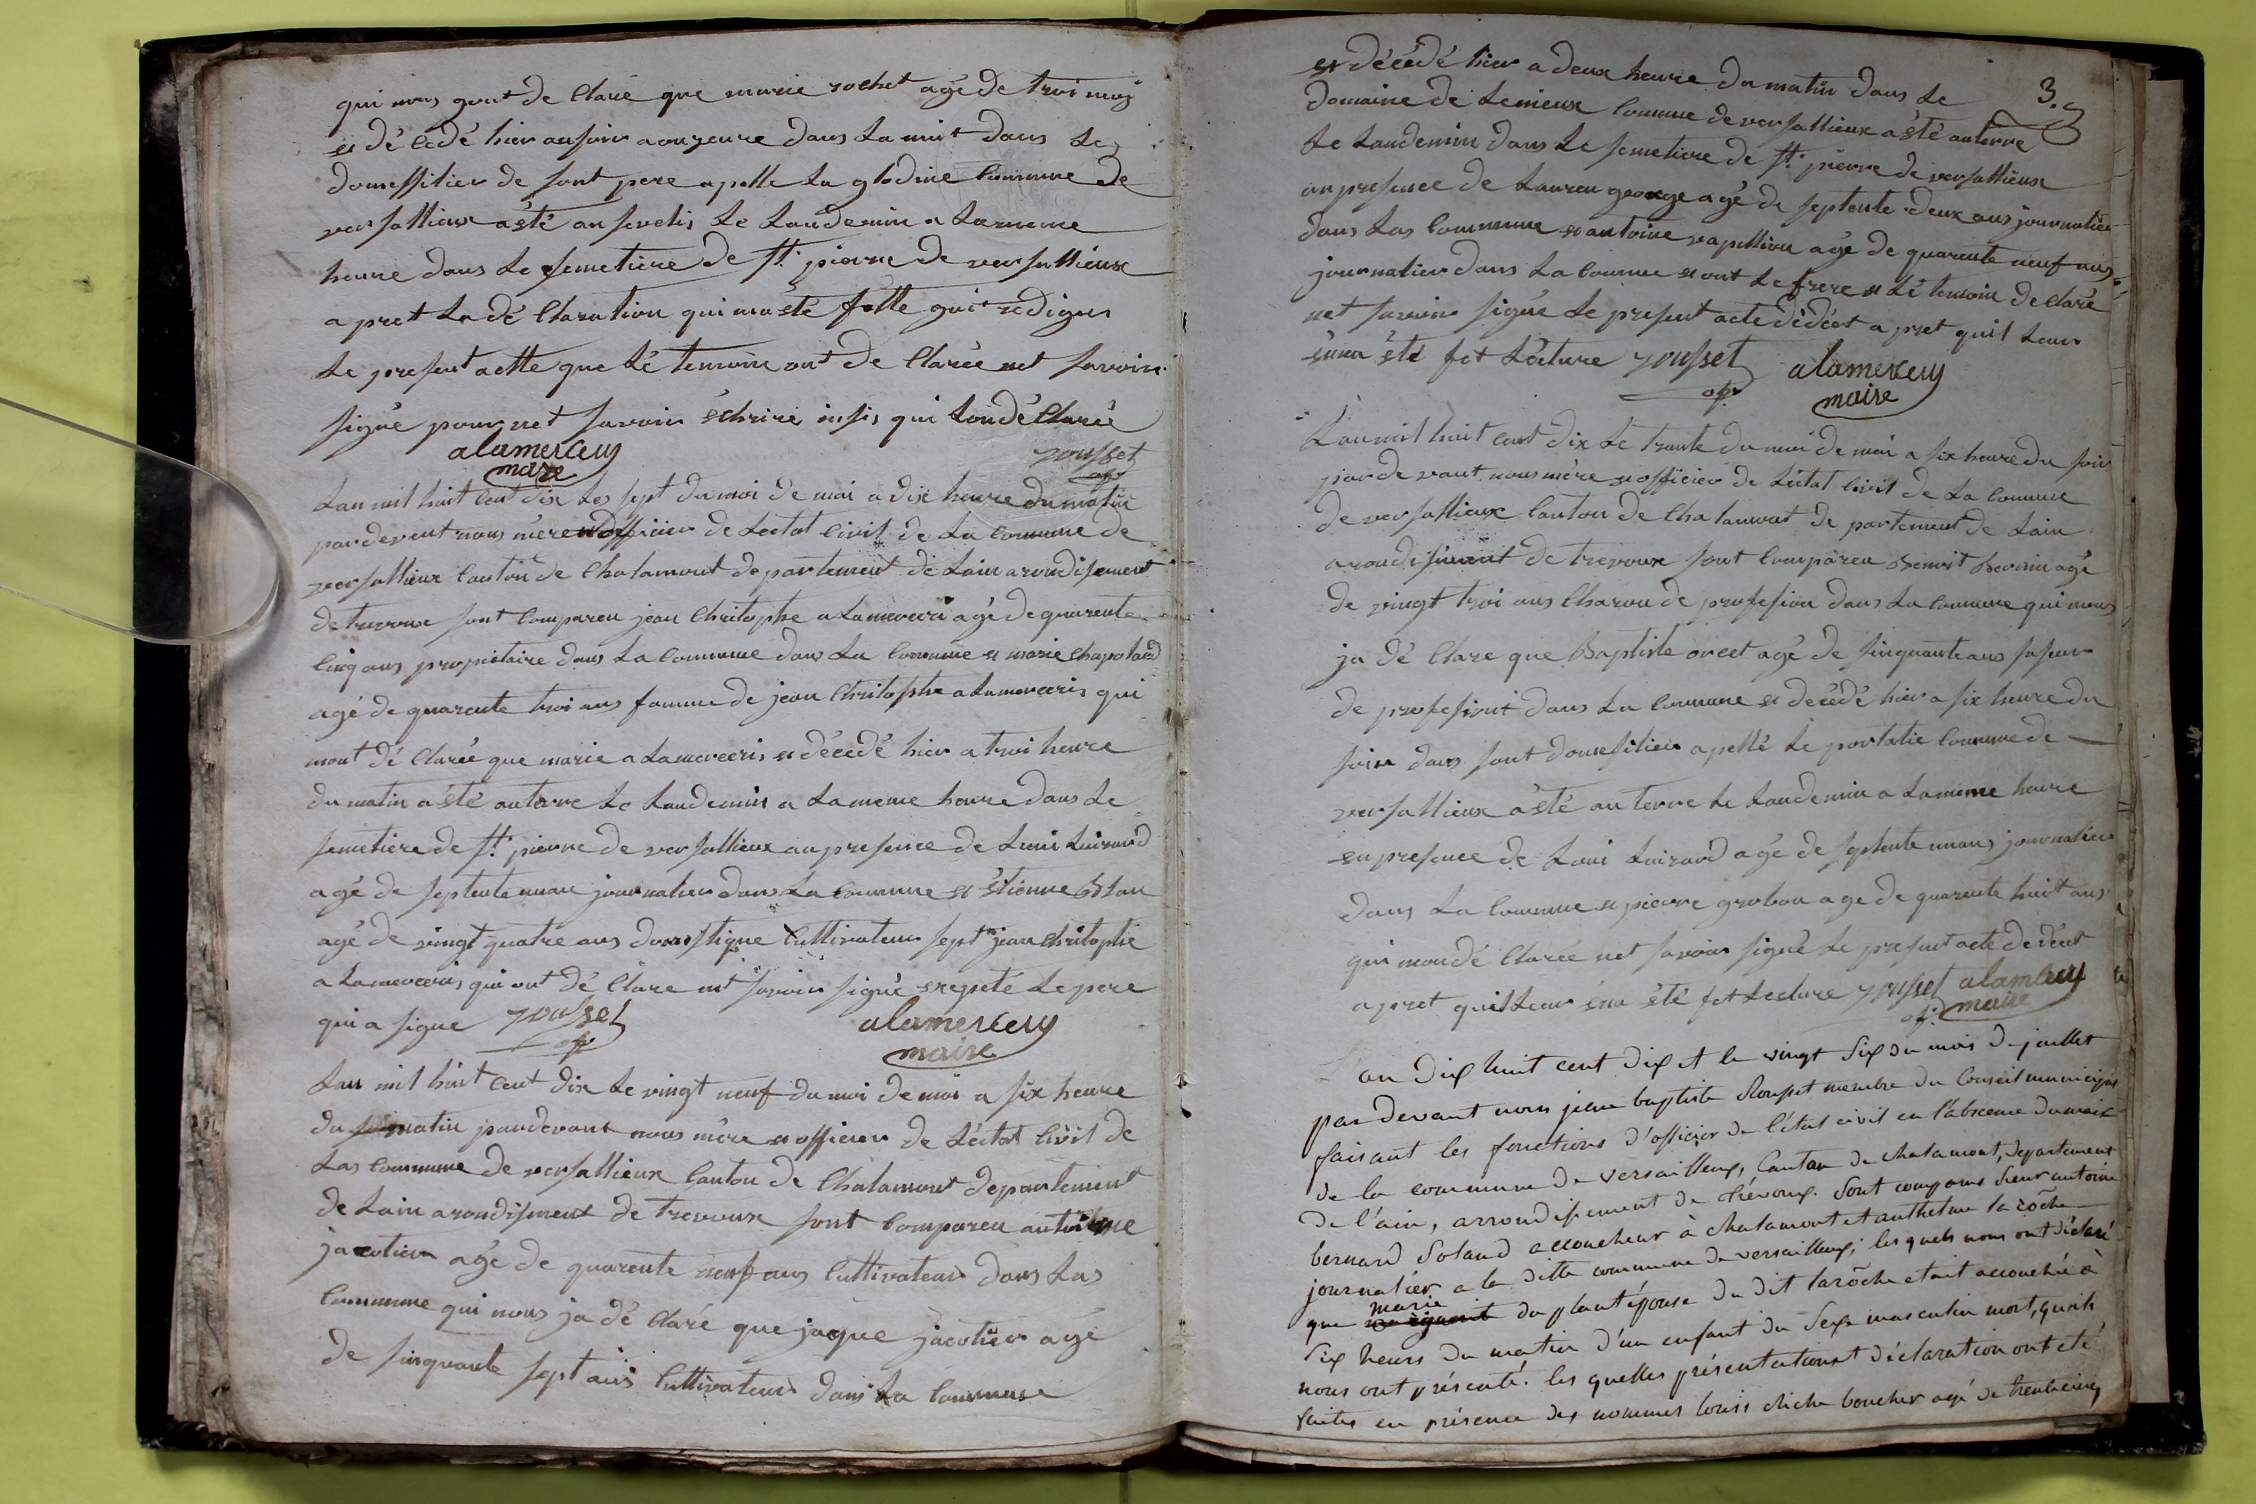 qui nous gont de Claré que marie rochet agé de troi moy
et dé cedé hier au soir a onzeure dans La nuit dans Le
domessilier de sont pere apelle La glodine Commune de
versallieux a été ansevelis Le Landemin a La meme
heure dans Le semetiere de St. pierre de versallieux
a pret La dé Claration qui ma été fette gait redigus
Le present actte que Lé temoin ont de Clarée net savoir
signé pour net savoir échrire insis qui Londé Clarée
alamercery rousset
maire of
Lan mil huit Cent dix Les sept du moi de mai a dix heure du matin
pardevent nous mere et officier de Lectat Civil de La Commune de
versallieux Canton de Chalamont departement de Lain arondisement
de trevoux sont Comparen jean Christophe alamerceri agé de quarente
Cinq ans propriétaire dans La Commune dans La Commune et marie Chapoland
agé de quarente troi ans famme de jean Christophe alamerceris qui
mont dé Clarée que marie alamerceris et décedé hier a troi heure
du matin a été anterre Le Landemin a La meme heure dans Le
semetiere de St. pierre de versallieux an presence de Loui Luirard
agé de septente unan journalier dans La Commune et étienne Blan
agé de vingt quatre ans domestique Culltivateur sept jean Christophe
alamerceris qui ont dé Clare net savoir signé exepeté Le pere
qui a signe rousset alamercery
of maire
Lan mil huit Cent dix Le vingt neuf du moi de moi a six heure
du matin pardevant nous mère et officier de Léctat Civil de
Las Commune de versallieux Canton de Chalamont departement
de Lain arondisment de trevoux sont Comparen antoinne
jacotier agé de quarente neuf ans Culltivateur dans Las
Commune qui nous ja dé Claré que jaque jacotier agé
de sinquante sept ans Culltivateur dans La Commune
3.
et décédé hier a deux heure du matin dans Le
domaine de Lemieux Commune de versallieux a été anterre
Le Landemin dans Le semetiere de St. pierre de versallieux
an presence de Lauren george agé de septente deux ans journalier
dans Las Commune et antoine rapillion agé de quarente neuf ans
journalier dans La Commune et ont Le frere et Lé temoin de Claré
net savoir signé Le present acte dédéct a pret quil Leur
éna été fet Lécture rousset alamercery
of maire
Lan mil huit Cent dix Le trante du moi de mai a six heure du soir
par de vant nous mère et officier de Léctat Civil de La Commune
de versallieux Canton de Chalamont de partement de Lain
arondisiment de trevoux sont Comparen Benoit Bevinin agé
de vingt troi ans Charon de profesion dans La Commune qui nous
ja dé Clare que Baptiste orcet agé de sinquante ans saseur
de profesiont dans La Commune et decédé hier a six heure du
soire dans sont domesilier apellé Le portalie Commune de
versallieux a été anterre Le Landemin a La meme heure
en presence de Loui Luirard agé de septente unans journalier
dans La Commune et pierre grobon age de quarente huit ans
qui mon dé Clarée net savoir signé Le present acte de déct
a pret quil Leur éna été fet Lecture rousset alamercery
of. maire
an dix huit cent dix et le vingt six du mois de juillet
par devant nous jean baptiste Rousset membre du Conseil municipal
faisant les fonctions d'officier de l'état civil en l'absence du maire
de la commune de versailleux, Canton de chalamont, departement
de l'ain, arrondissement de trévoux. Sont comparus Sieur antoine
bernard Soland accoucheur à chalamont et anthelme laröche
journalier a la ditte commune de versailleux; les quels nous ont déclaré
que marie du plant épouse du dit laröche etait accouchée à
Six heures du matin d'un enfant du Sexe masculin mort, qu'ils
nous ont présenté. les quelles présentation et déclaration ont eté
faites en présence des nommés louis chiche boucher agé de trente cinq